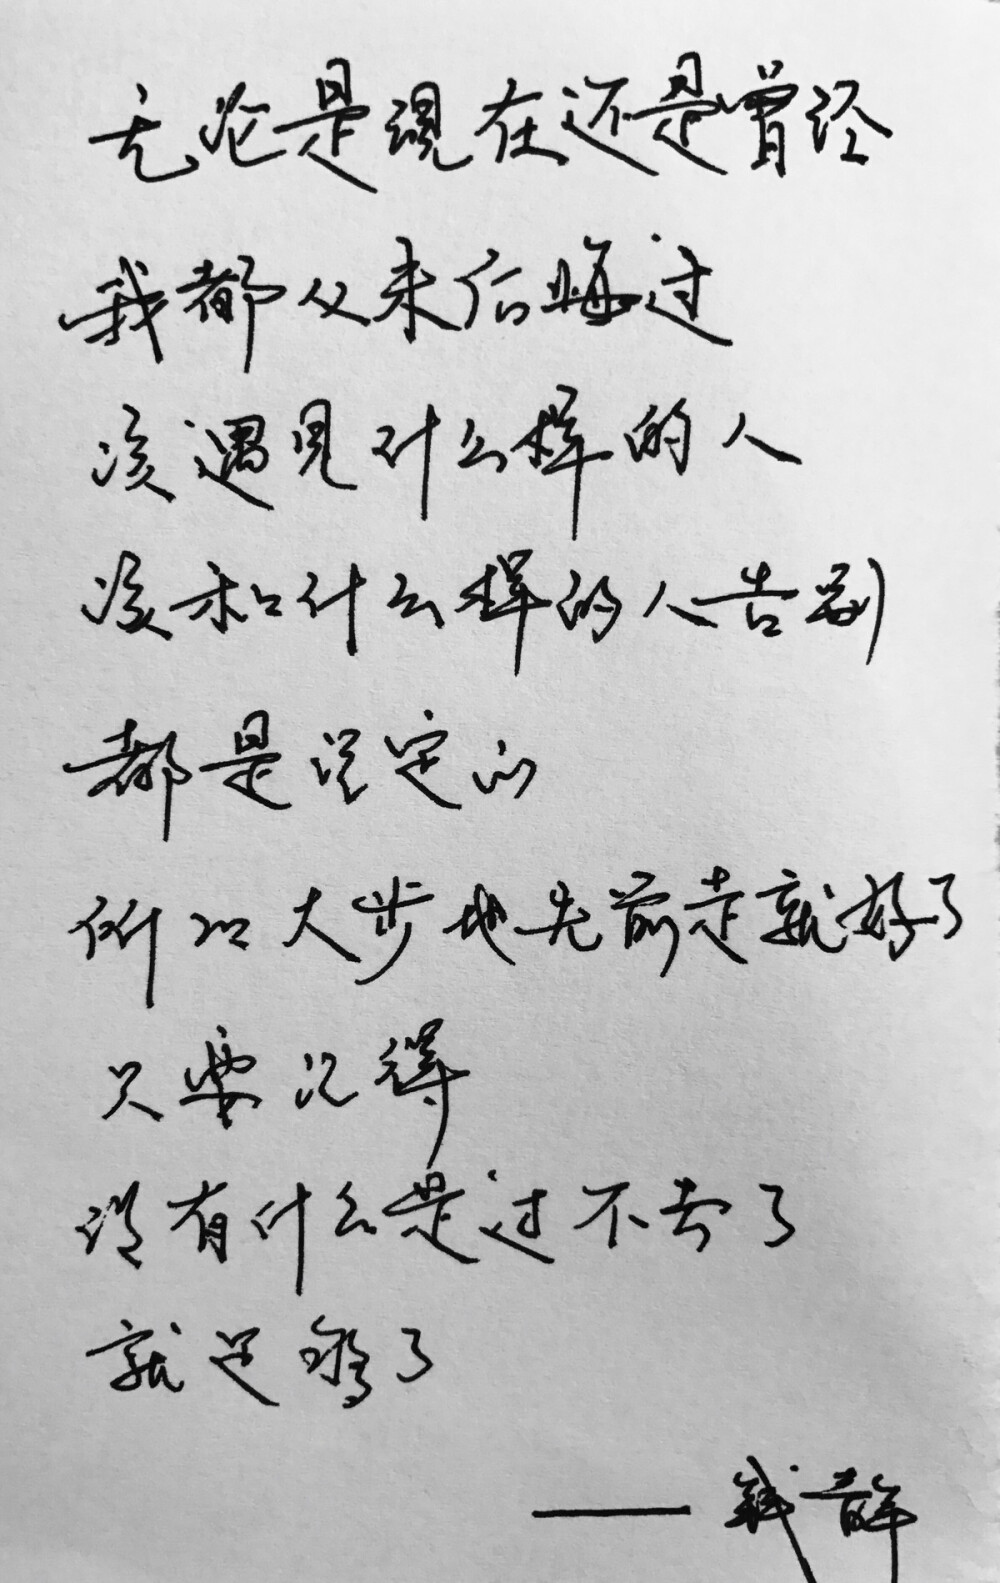 无论是现在还是曾经
我都从未后悔过
该遇见什么样的人
该和什么样的人告别
都是注定的
所以大步地先前走就好了
只要记得
没有什么是过不去了
就足够了
——